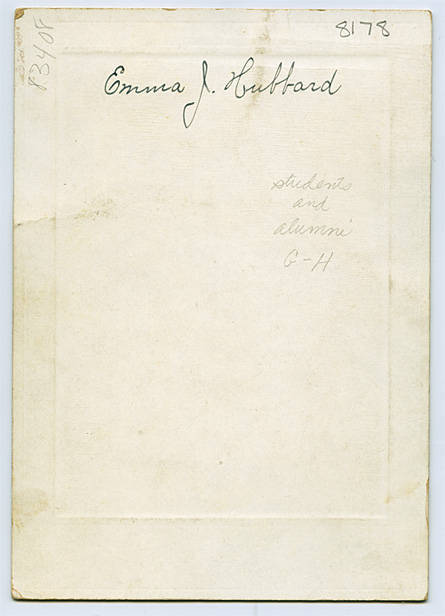 8178
83408
Emma J. Hubbard
students
and
alumni
G-H